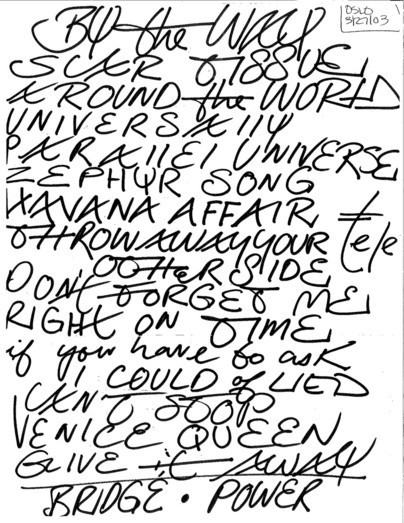 OSLO
BY the WAY
SCAR TISSUE
AROUND the WORLD
UNIVERSALLY
PARALLEL UNIVERSE
ZEPHYR SONG
HAVANA AFFAIR
THROW AWAY YOUR tele
OTHERSIDE
DON'T FORGET ME
RIGHT ON TIME
if you have to ask
I COULD of LIED
CAN'T STOP
VENICE QUEEN
GIVE it AWAY
BRIDGE • POWER